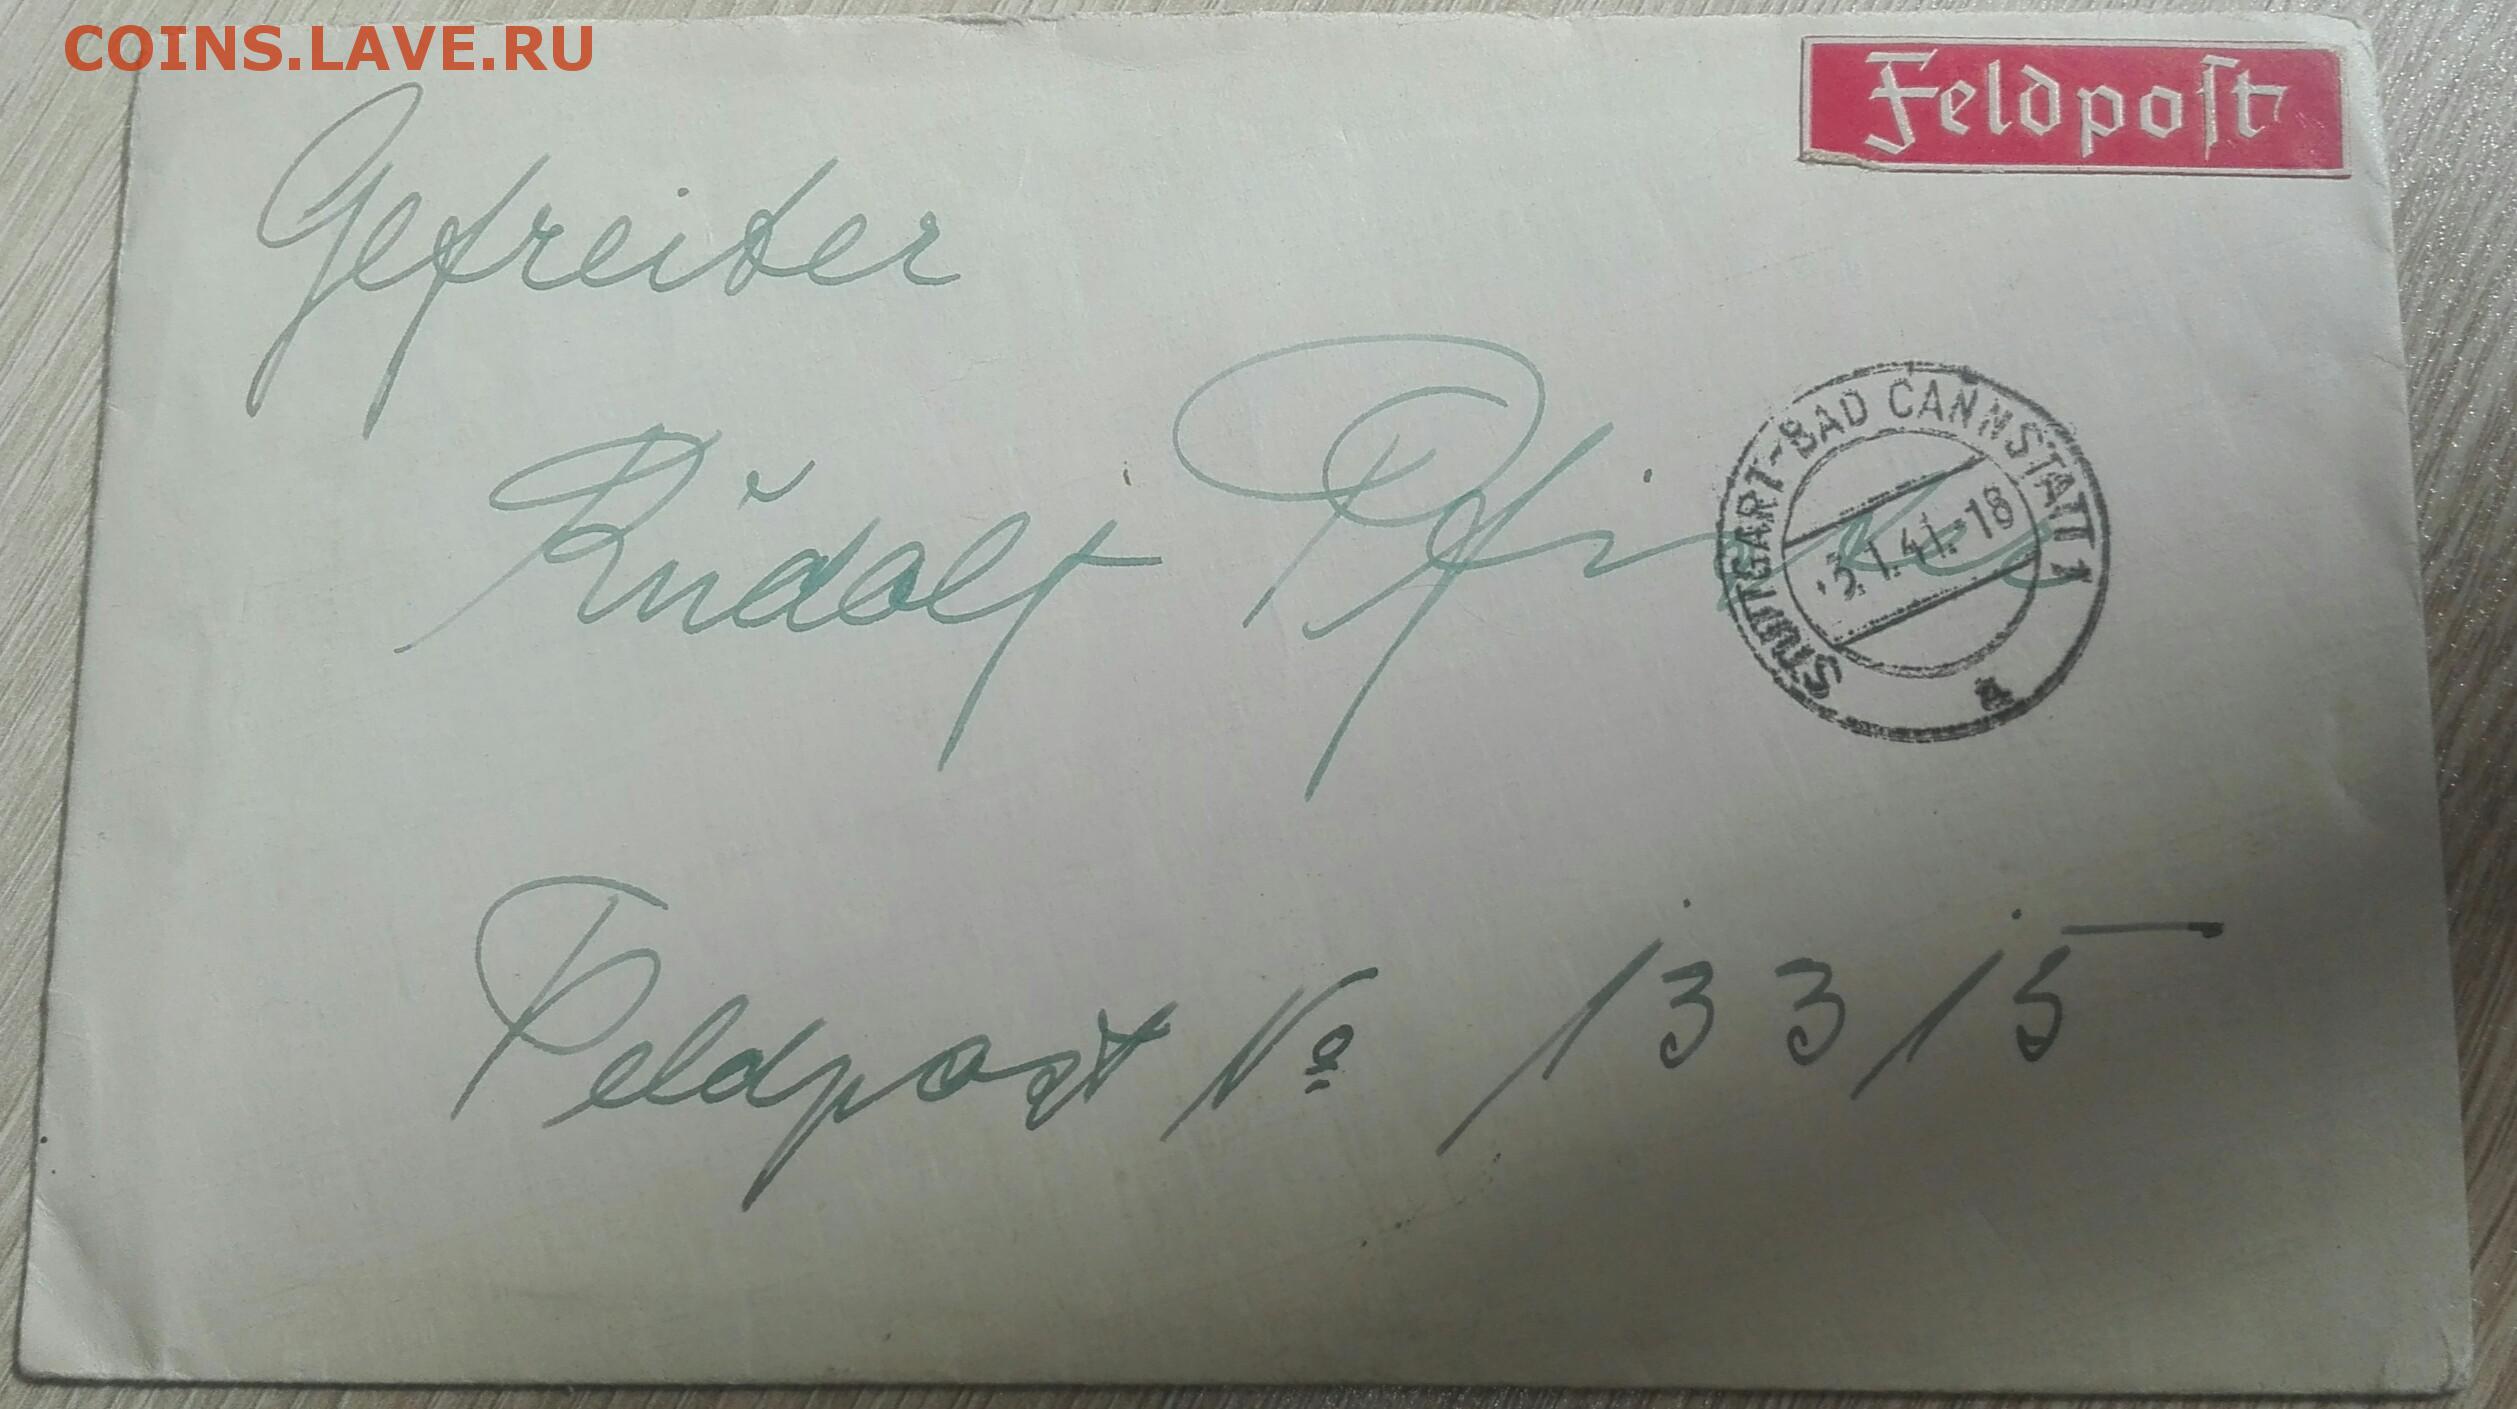 COINS.LAVE.RU
Feldpost
Gefreiter
Rudolf
STUTTGART-BAD CANNSTATT 1
.1.41.-18
a
Feldpost No 13315